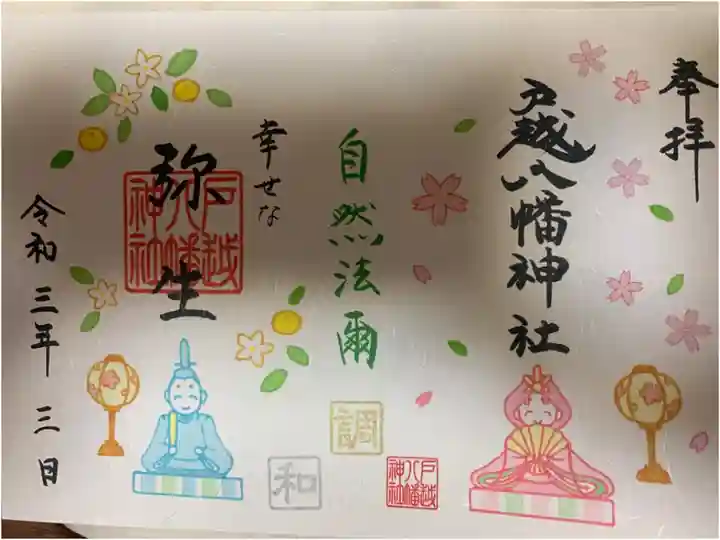 奉拝
戸越八幡神社
自然法爾
幸せな
弥生
戸越八幡神社
令和三年 三日
調
和
戸越八幡神社